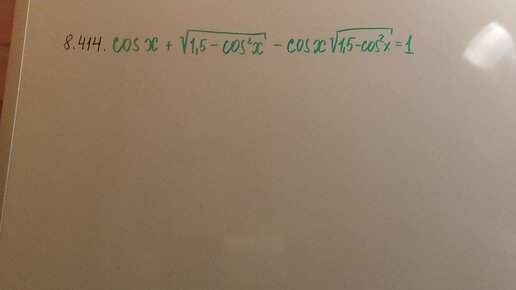 8.414. cos x + √(1,5 - cos²x) - cos x √(1,5-cos²x) = 1